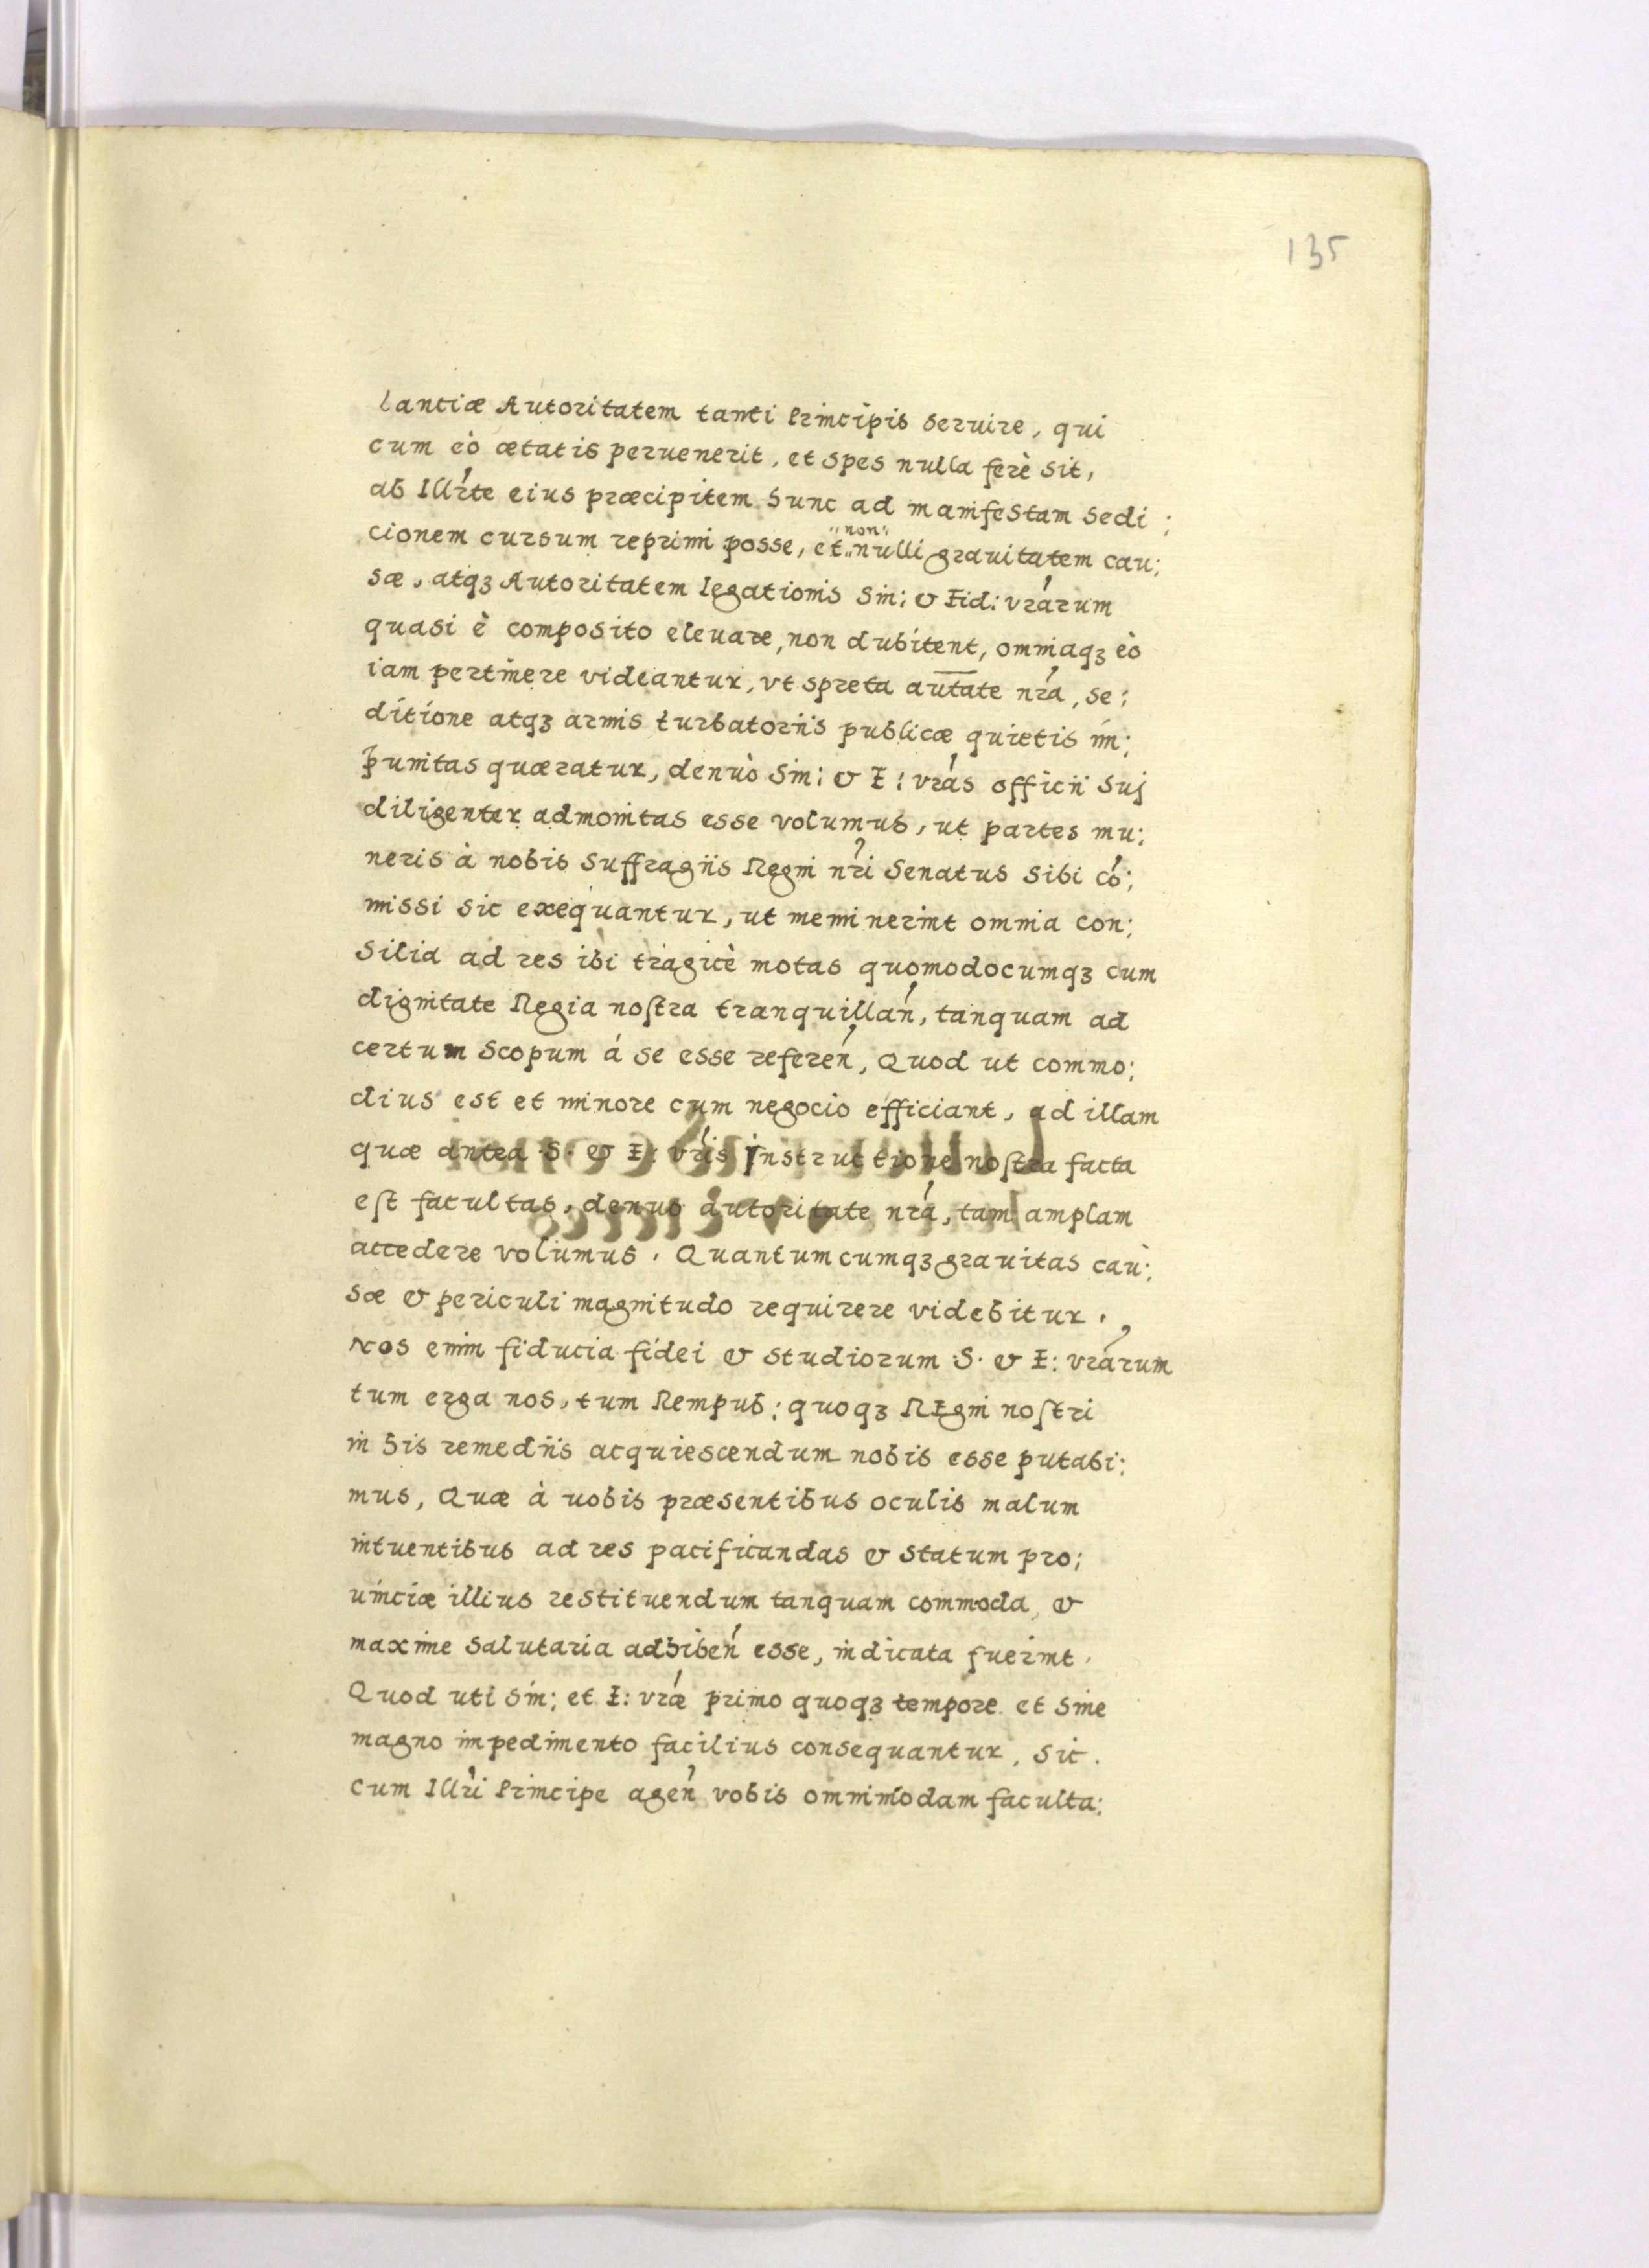 135
lantiæ Autoritatem tanti Principis seruire, qui
cum eò ætatis peruenerit, et spes nulla ferè sit,
ab Illr̃te eius præcipitem hunc ad manifestam sedi:
cionem cursum reprimi posse, et non nulli grauitatem cau:
sæ, atqȝ Autoritatem legationis Sin: & Fid: vr̃arum
quasi è composito eleuare, non dubitent, omniaqȝ eò
iam pertinere videantur, vt spreta aut̅ate nr̃a, se:
ditione atqȝ armis turbatoriis publicæ quietis im:
punitas quæratur, denuò Sin: & F: vr̃as officii suj
diligenter admonitas esse volumus, ut partes mu:
neris à nobis suffragiis Regni nr̃i Senatus sibi cõ:
missi sic exequantur, ut meminerint omnia con:
silia ad res ibi tragicè motas quomodocumqȝ cum
dignitate Regia noſtra tranquillañ, tanquam ad
certum scopum á se esse refereñ, Quod ut commo:
dius est et minore cum negocio efficiant, ad illam
quæ antea S. & F: vr̃is jnstructione noſtra facta
eſt facultas, denuo autoritate nr̃a, tam amplam
accedere volumus. Quantumcumqȝ grauitas cau:
sæ & periculi magnitudo requirere videbitur.
Nos enim fiducia fidei & studiorum S. & F: vr̃arum
tum erga nos, tum Rempub: quoqȝ REgni noſtri
in his remediis acquiescendum nobis esse putabi:
mus, Quæ à uobis præsentibus oculis malum
intuentibus ad res pacificandas & statum pro:
uinciæ illius restituendum tanquam commoda, &
maxime salutaria adhibeñ esse, indicata fuerint.
Quod uti Sin: et F: vr̃æ primo quoqȝ tempore et sine
magno impedimento facilius consequantur, sic.
cum Illr̃i Principe ageñ vobis omnimodam faculta: